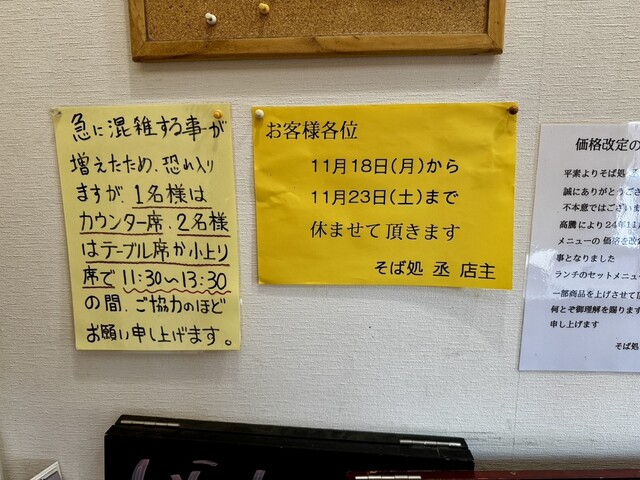 急に混雑する事が
増えたため、恐れ入り
ますが、1名様は
カウンター席、2名様
はテーブル席か小上り
席で11:30〜13:30
の間、ご協力のほど
お願い申し上げます。
お客様各位
11月18日(月)から
11月23日(土)まで
休ませて頂きます
そば処 丞 店主
価格改定の
平素よりそば処 丞
誠にありがとうござ
不本意ではございま
高騰により24年11月
メニューの価格を改
事となりました
ランチのセットメニュー
一部商品を上げさせて
何とぞ御理解を賜ります
申し上げます
そば処